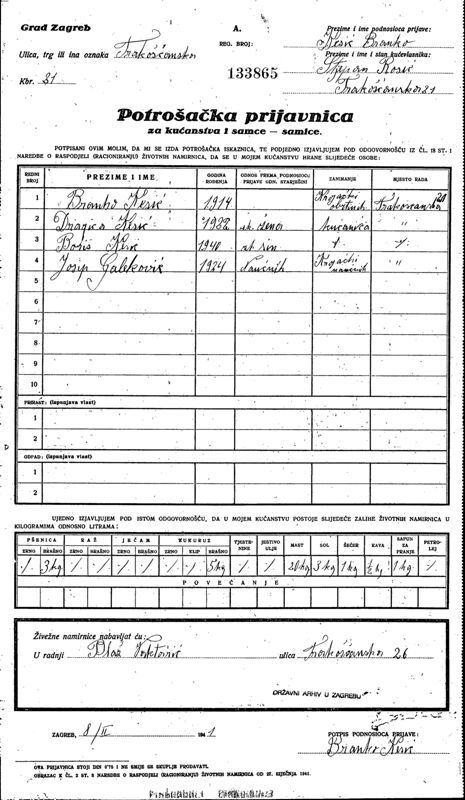 Grad Zagreb
A.
Prezime i ime podnosioca prijave:
Kesić Branko
Ulica, trg ili ina oznaka Trakošćanska
REG. BROJ:
Prezime i ime i stan kućevlasnika:
Stjepan Rosić
Kbr. 21
133865
Trakošćanska 21
Potrošačka prijavnica
za kućanstva i samce — samice.
POTPISANI OVIM MOLIM, DA MI SE IZDA POTROŠAČKA ISKAZNICA, TE PODJEDNO IZJAVLJUJEM POD ODGOVORNOŠĆU IZ ČL. 18 ST. 1
NAREDBE O RASPODJELI (RACIONIRANJU) ŽIVOTNIH NAMIRNICA, DA SE U MOJEM KUĆANSTVU HRANE SLIJEDEĆE OSOBE:
REDNI BROJ PREZIME I IME GODINA ROĐENJA ODNOS PREMA PODNOSIOCU PRIJAVE ODN. SVARJEŠINI ZANIMANJE MJESTO RADA
1 Branko Kesić 1914 Krojački obrtnik Trakošćanska 21
2 Dragica Kesić 1922 žena kućanica "
3 Boris Kesić 1940 sin ⁒ ⁒
4 Josip Galeković 1924 Naučnik Krojački naučnik "
5
6
7
8
9
10
PRIRAST: (Ispunjava vlast)
1
2
OTPAD: (Ispunjava vlast)
1
2
UJEDNO IZJAVLJUJEM POD ISTOM ODGOVORNOŠĆU, DA U MOJEM KUĆANSTVU POSTOJE SLIJEDEĆE ZALIHE ŽIVOTNIH NAMIRNICA U
KILOGRAMIMA ODNOSNO LITRAMA:
PŠENICA RAŽ JEČAM KUKURUZ TJESTENINE JESTIVO ULJE MAST SOL ŠEĆER KAVA SAPUN ZA PRANJE PETROLEJ
ZRNO BRAŠNO ZRNO BRAŠNO ZRNO BRAŠNO ZRNO KLIP BRAŠNO
⁒ 3 kg ⁒ ⁒ ⁒ ⁒ ⁒ ⁒ 5 kg ⁒ ⁒ 20 kg 3 kg 1 kg ½ kg 1 kg ⁒
POVEĆANJE
Živežne namirnice nabavljat ću:
U radnji Blaž ulica Trakošćanska 26
DRŽAVNI ARHIV U ZAGREBU
ZAGREB, 8/II 1941
POTPIS PODNOSIOCA PRIJAVE:
Branko Kesić
OVA PRIJAVNICA STOJI DIN 0'75 I NE SMIJE SE SKUPLJE PRODAVATI.
OBRAZAC K ČL. 7 ST. 2 NAREDBE O RASPODJELI (RACIONIRANJU) ŽIVOTNIH NAMIRNICA OD 27. SIJEČNJA 1941.